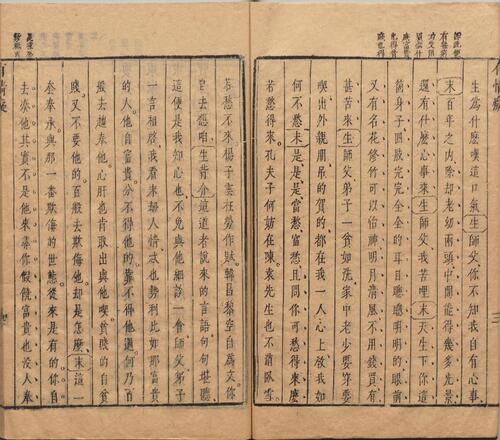 生爲什麼嘆這口氣生師父你不知我自有心事
末百年之內除却老幼兩頭中間能得幾多光景
還有什麼心事來生師父我苦哩末天生下你這
箇身子四肢完完全全的耳目聰聰明明的眼前
又有名花修竹可以怡神明月清風不用錢買有
甚苦來生師父弟子一貧如洗家中老少要穿要
喫出外親朋弔的賀的都在我一人心上放我
何不愁末是是是當愁當愁且問你可愁得來麼
若愁得來孔夫子何妨在陳袁先生也不謂臥雪
若愁不來楊子雲枉勞作賦韓昌黎空自爲文你
自去想咱生背介這道者說來的言語句句堪聽
這便是我知心也不免與他細談一會師父弟子
有一言相啟我看末刼人情政也勢利比如那富貴
的人他自富貴分不得他的靠不得他邇何乃百
般去趨奉他心肝也肯取出與他喫貧賤的自貧
賤又不要他的百般去欺侮他却是怎麼末這一
奉承與那一套欺侮的世態從來是有的你自
去奉他其實不是他來靠你假饒富貴也沒人奉